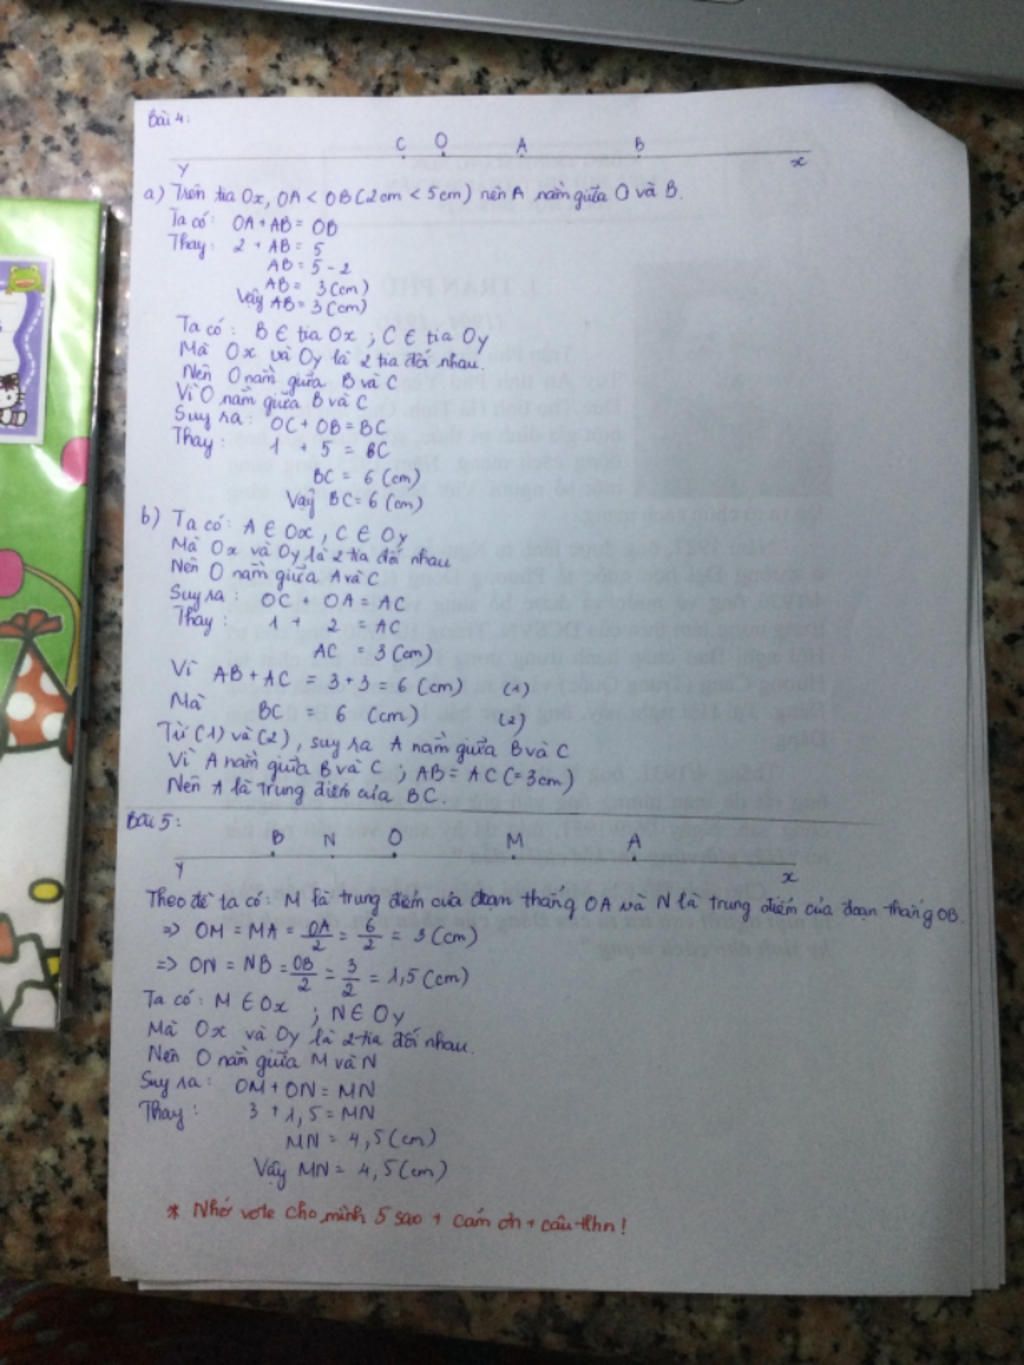 Bài 4:
C O A B
y x
a) Trên tia Ox, OA < OB (2cm < 5cm) nên A nằm giữa O và B.
Ta có: OA + AB = OB
Thay: 2 + AB = 5
AB = 5 - 2
AB = 3 (cm)
Vậy AB = 3 (cm)
Ta có: B ∈ tia Ox ; C ∈ tia Oy
Mà Ox và Oy là 2 tia đối nhau.
Nên O nằm giữa B và C
Vì O nằm giữa B và C
Suy ra: OC + OB = BC
Thay: 1 + 5 = BC
BC = 6 (cm)
Vậy BC = 6 (cm)
b) Ta có: A ∈ Ox, C ∈ Oy
Mà Ox và Oy là 2 tia đối nhau
Nên O nằm giữa A và C
Suy ra: OC + OA = AC
Thay: 1 + 2 = AC
AC = 3 (cm)
Vì AB + AC = 3 + 3 = 6 (cm) (1)
Mà BC = 6 (cm) (2)
Từ (1) và (2), suy ra A nằm giữa B và C
Vì A nằm giữa B và C ; AB = AC (= 3cm)
Nên A là trung điểm của BC.
Bài 5:
B N O M A
y x
Theo đề ta có: M là trung điểm của đoạn thẳng OA và N là trung điểm của đoạn thẳng OB.
=> OM = MA = OA/2 = 6/2 = 3 (cm)
=> ON = NB = OB/2 = 3/2 = 1,5 (cm)
Ta có: M ∈ Ox ; N ∈ Oy
Mà Ox và Oy là 2 tia đối nhau.
Nên O nằm giữa M và N
Suy ra: OM + ON = MN
Thay: 3 + 1,5 = MN
MN = 4,5 (cm)
Vậy MN = 4,5 (cm)
* Nhớ vote cho mình 5 sao + cám ơn + câu tlhn!